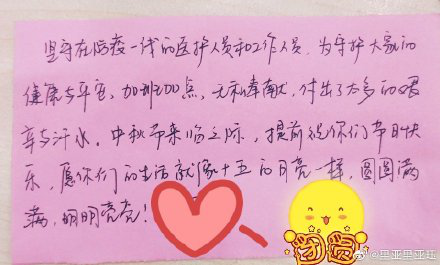 坚守在防疫一线的医护人员和工作人员，为守护大家的
健康与平安，加班加点，无私奉献，付出了太多的艰
辛与汗水。中秋节来临之际，提前祝你们节日快
乐，愿你们的生活就像十五的月亮一样，圆圆满
满，明明亮亮！
团圆
@星亚星亚社